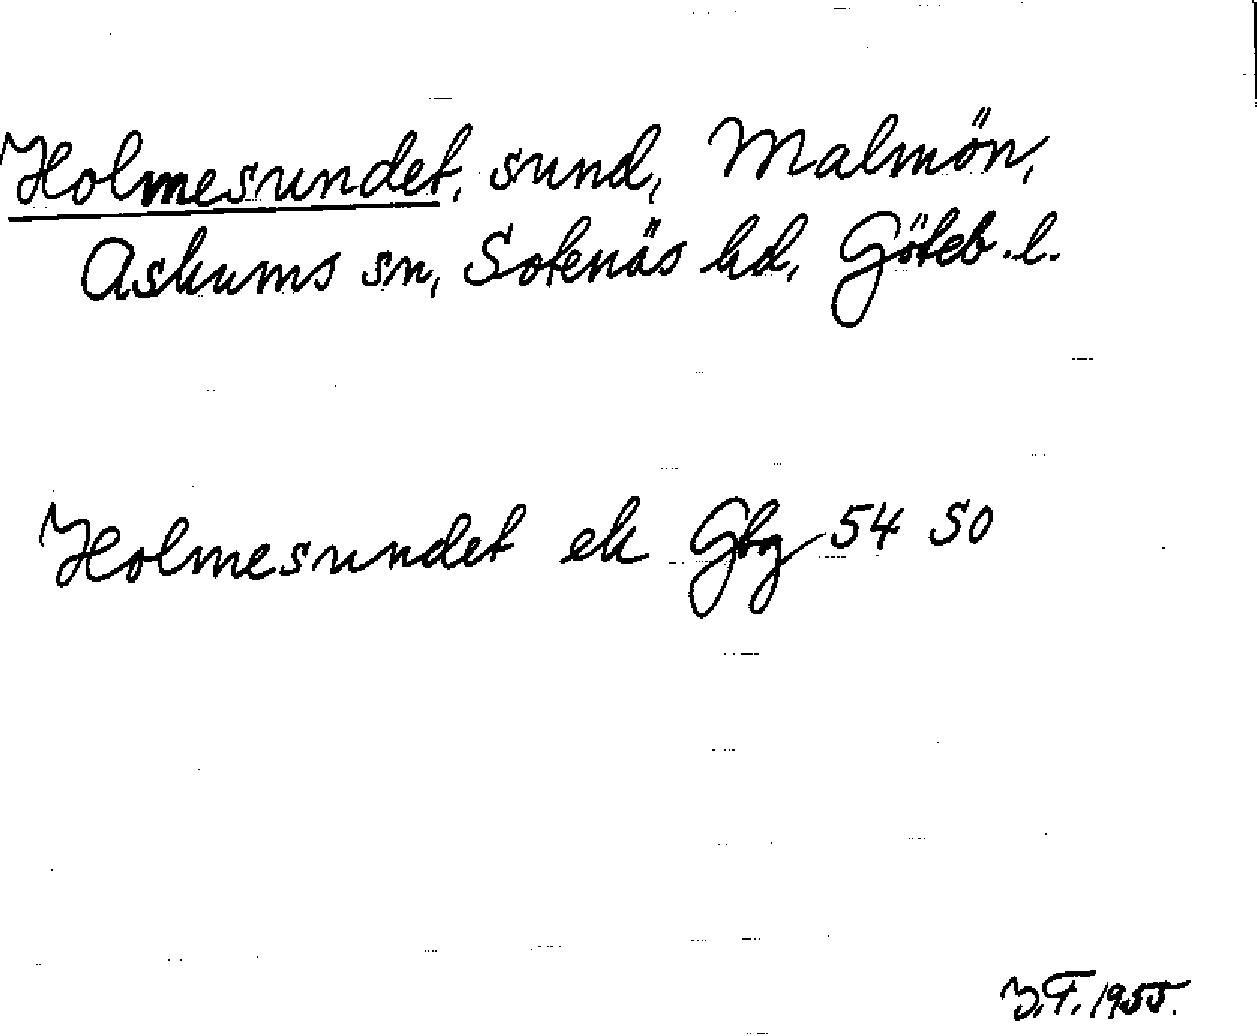 Holmesundet, sund, Malmön,
Askums sn, Sotenäs hd, Göteb.l.
Holmesundet ek Gbg 54 SO
1955.